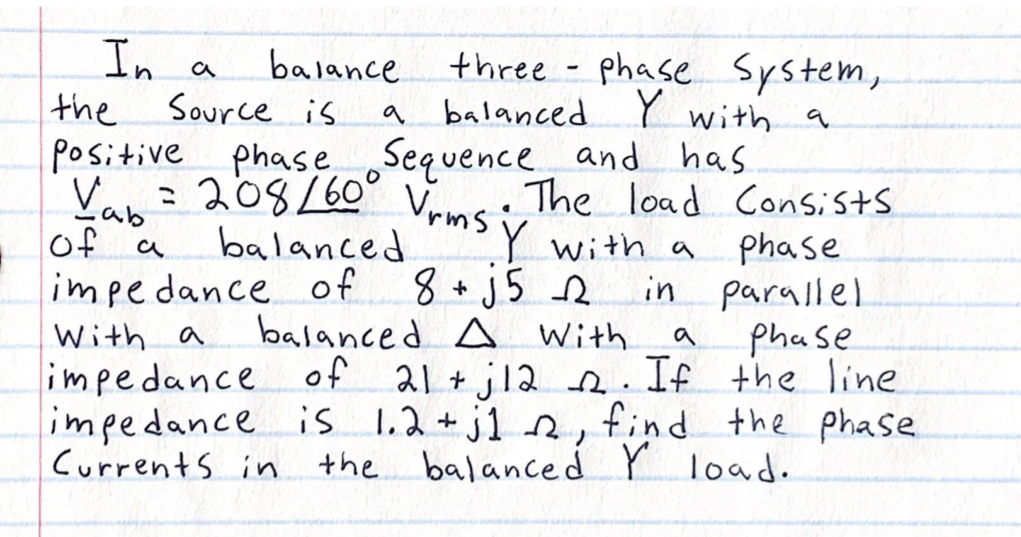 In a balance three-phase system,
the Source is a balanced Y with a
positive phase Sequence and has
V̲ab = 208∠60° Vrms. The load Consists
of a balanced Y with a phase
impedance of 8 + j5 Ω in parallel
with a balanced Δ with a phase
impedance of 21 + j12 Ω. If the line
impedance is 1.2 + j1 Ω, find the phase
Currents in the balanced Y load.